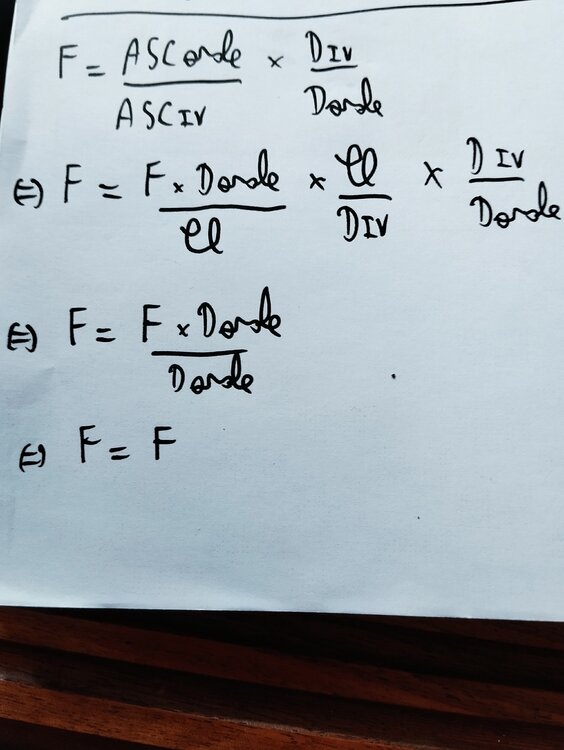 F = ASCorde / ASCIV × DIV / Dorde
⇔ F = F × Dorde / Cl × Cl / DIV × DIV / Dorde
⇔ F = F × Dorde / Dorde
⇔ F = F